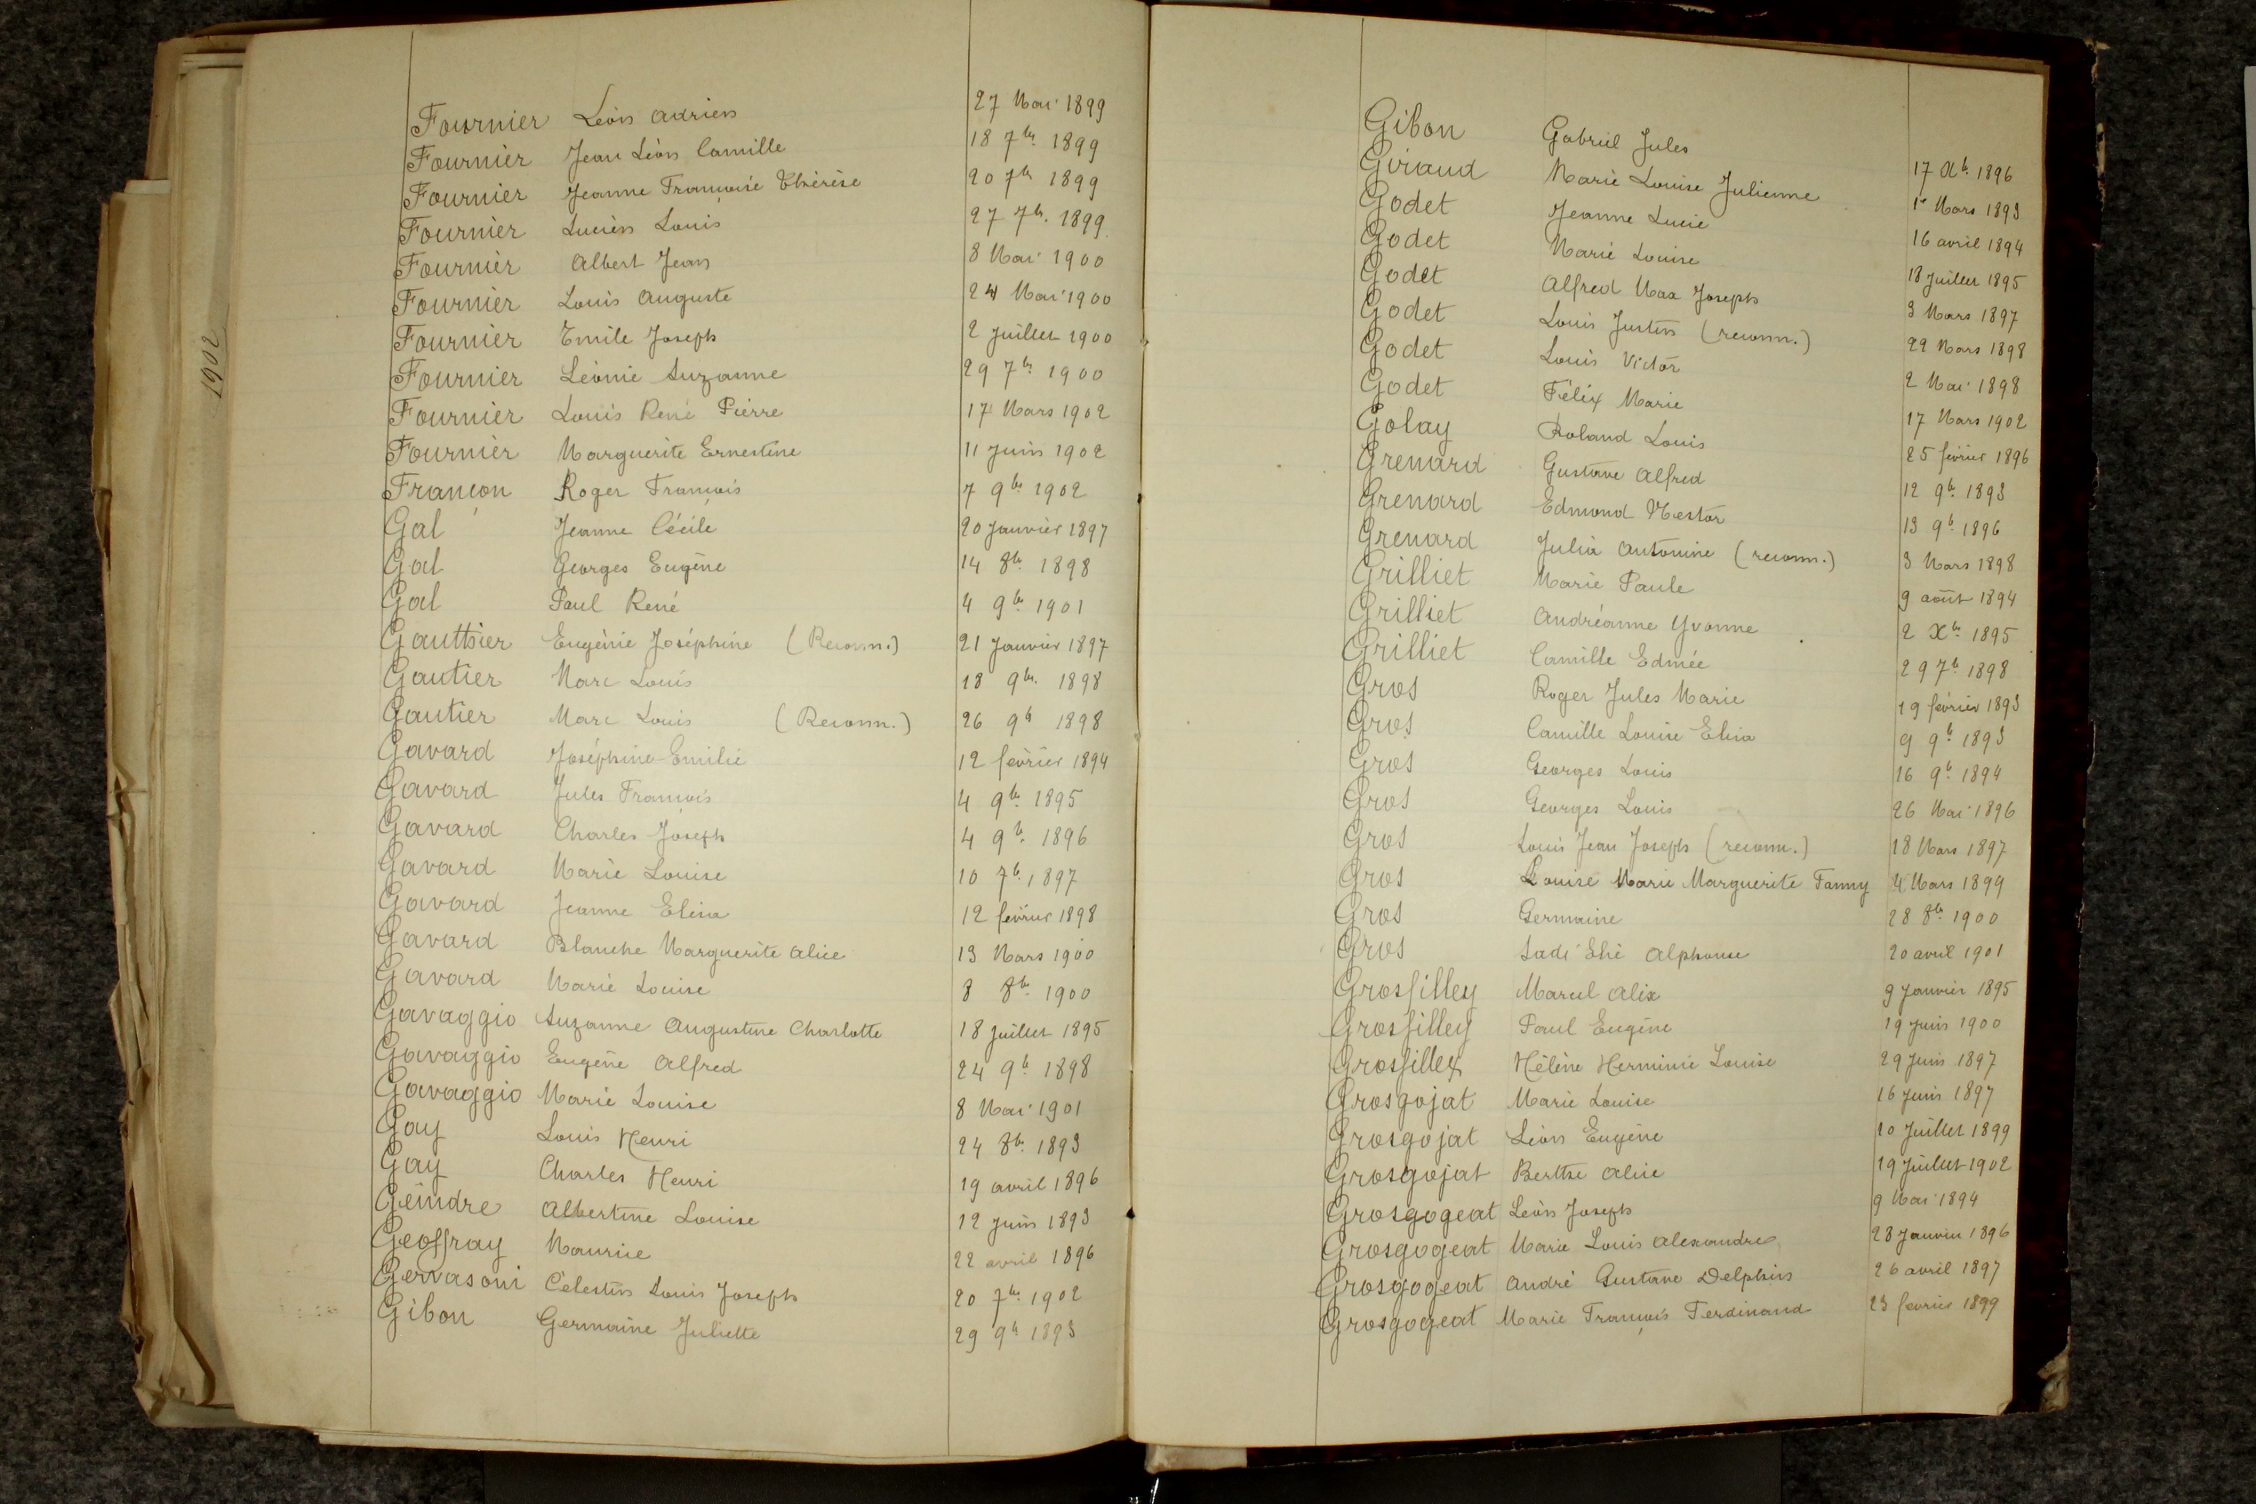 1902
Fournier Léon Adrien 27 Mai 1899
Fournier Jean Léon Camille 18 7bre 1899
Fournier Jeanne Françoise Thérèse 20 7bre 1899
Fournier Lucien Louis 27 7bre 1899
Fournier Albert Jean 8 Mai 1900
Fournier Louis Auguste 24 Mai 1900
Fournier Emile Joseph 2 Juillet 1900
Fournier Léonie Suzanne 29 7bre 1900
Fournier Louis René Pierre 17 Mars 1902
Fournier Marguerite Ernestine 11 Juin 1902
Françon Roger François 7 9bre 1902
Gal Jeanne Cécile 20 Janvier 1897
Gal Georges Eugène 14 8bre 1898
Gal Paul René 4 9bre 1901
Gauthier Eugénie Joséphine (Reconn.) 21 Janvier 1897
Gautier Marc Louis 18 9bre 1898
Gautier Marc Louis (Reconn.) 26 9b 1898
Gavard Joséphine Emilie 12 février 1894
Gavard Jules François 4 9bre 1895
Gavard Charles Joseph 4 9b 1896
Gavard Marie Louise 10 7b 1897
Gavard Jeanne Elisa 12 février 1898
Gavard Blanche Marguerite Alice 13 Mars 1900
Gavard Marie Louise 8 8bre 1900
Gavaggio Suzanne Augustine Charlotte 18 Juillet 1895
Gavaggio Eugène Alfred 24 9b 1898
Gavaggio Marie Louise 8 Mai 1901
Gay Louis Henri 24 8bre 1893
Gay Charles Henri 19 avril 1896
Geindre Albertine Louise 12 Juin 1893
Geoffray Maurice 22 avril 1896
Gervasoni Célestin Louis Joseph 20 7bre 1902
Gibon Germaine Juliette 29 9b 1893
Gibon Gabriel Jules 17 Xb 1896
Giraud Marie Louise Julienne 1er Mars 1893
Godet Jeanne Lucie 16 avril 1894
Godet Marie Louise 18 Juillet 1895
Godet Alfred Max Joseph 3 Mars 1897
Godet Louis Justin (reconn.) 22 Mars 1898
Godet Louis Victor 2 Mai 1898
Godet Félix Marie 17 Mars 1902
Golay Roland Louis 25 février 1896
Grenard Gustave Alfred 12 9b 1893
Grenard Edmond Nestor 13 9b 1896
Grenard Julia Antonine (reconn.) 3 Mars 1898
Grilliet Marie Paule 9 août 1894
Grilliet Andréanne Yvonne 2 Xbre 1895
Grilliet Camille Edmée 29 7b 1898
Gros Roger Jules Marie 19 février 1893
Gros Camille Louise Elisa 9 9b 1893
Gros Georges Louis 16 9b 1894
Gros Georges Louis 26 Mai 1896
Gros Louis Jean Joseph (reconn.) 18 Mars 1897
Gros Louise Marie Marguerite Fanny 4 Mars 1899
Gros Germaine 28 8bre 1900
Gros Sadi Elie Alphonse 20 avril 1901
Grosfilley Marcel Alix 9 Janvier 1895
Grosfilley Paul Eugène 19 Juin 1900
Grosfillex Hélène Herminie Louise 29 Juin 1897
Grosgojat Marie Louise 16 Juin 1897
Grosgojat Léon Eugène 10 Juillet 1899
Grosgojat Berthe Alice 19 Juillet 1902
Grosgogeat Léon Joseph 9 Mai 1894
Grosgogeat Marie Louis Alexandre 28 Janvier 1896
Grosgogeat André Gustave Delphin 26 avril 1897
Grosgogeat Marie François Ferdinand 23 février 1899